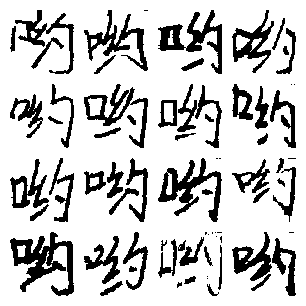 哟哟哟哟
哟哟哟哟
哟哟哟哟
哟哟哟哟